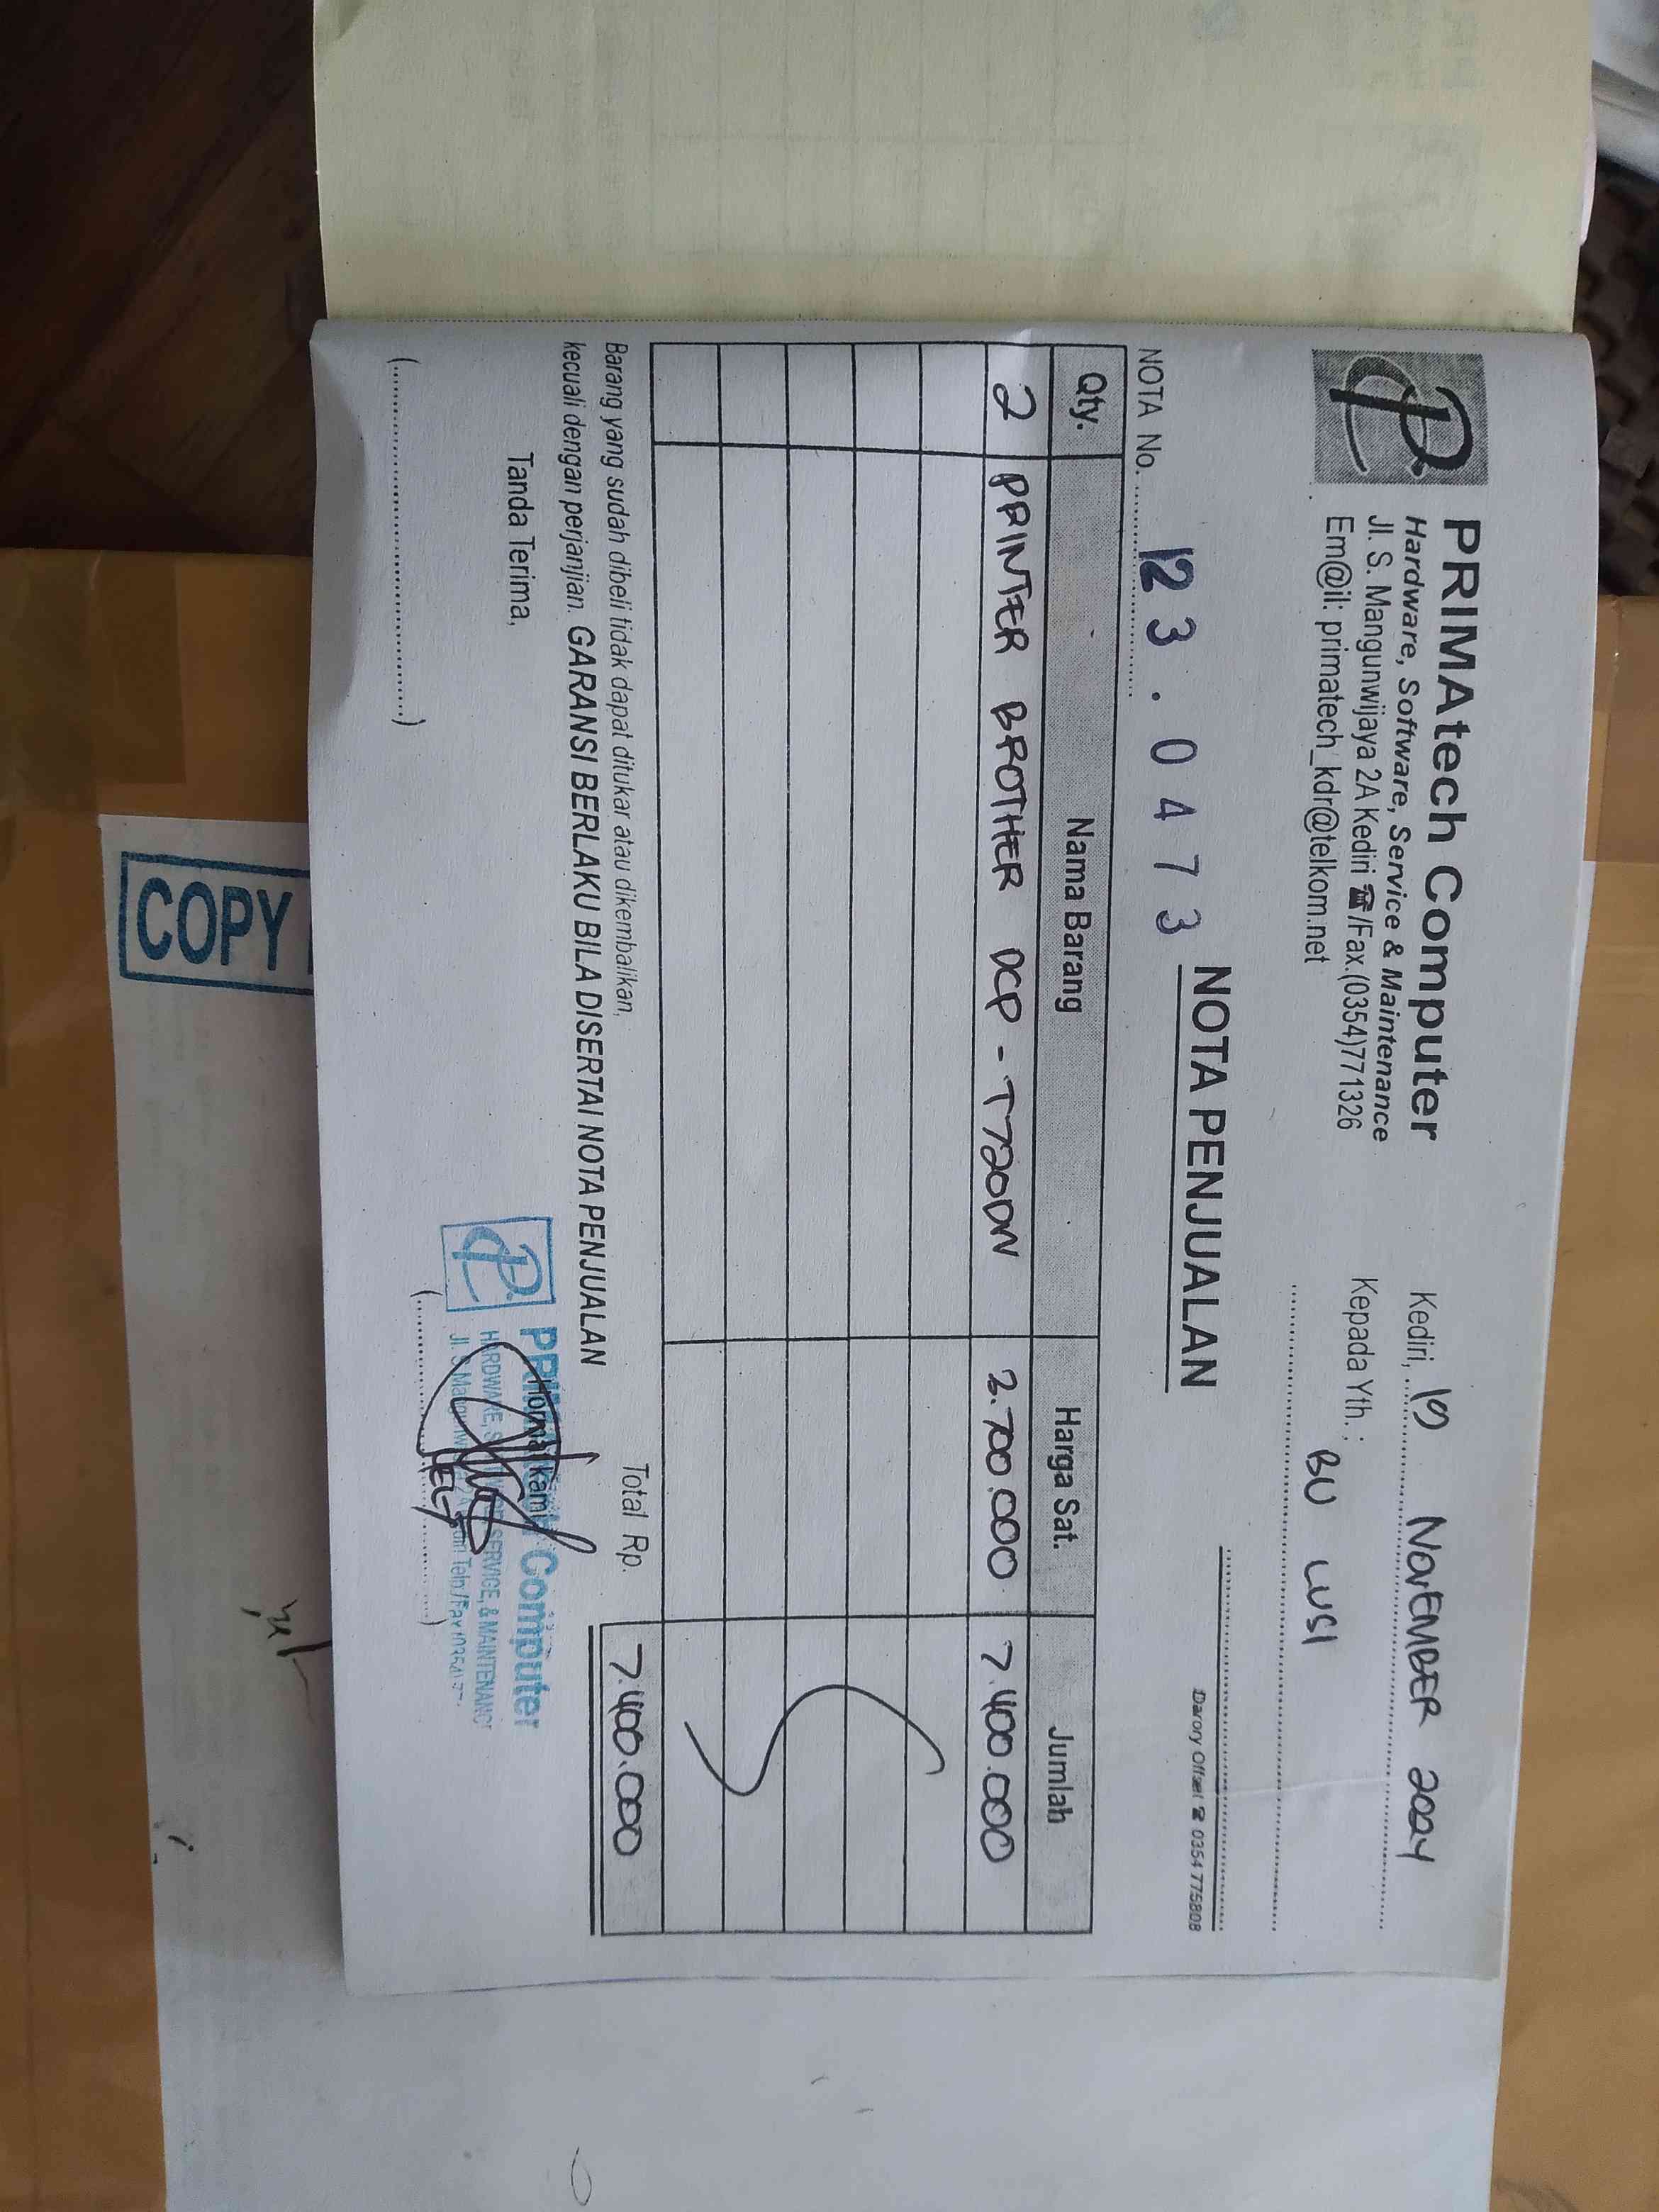 PRIMAtech Computer
Hardware, Software, Service & Maintenance
Jl. S. Mangunwijaya 2A Kediri ☎/Fax.(0354)771326
Em@il: primatech_kdr@telkom.net
Kediri, 19 NOVEMBER 2024
Kepada Yth.:
BU LUSI
NOTA PENJUALAN
Darory Offset ☎ 0354 775808
NOTA No. 123.04473
Qty. Nama Barang Harga Sat. Jumlah
2 PRINTER BROTHER DCP-T720DW 3.700.000 7.400.000
Total Rp. 7.400.000
Barang yang sudah dibeli tidak dapat ditukar atau dikembalikan,
kecuali dengan perjanjian. GARANSI BERLAKU BILA DISERTAI NOTA PENJUALAN
Tanda Terima,
Hormat kami
Computer
SERVICE, & MAINTENANC
COPY